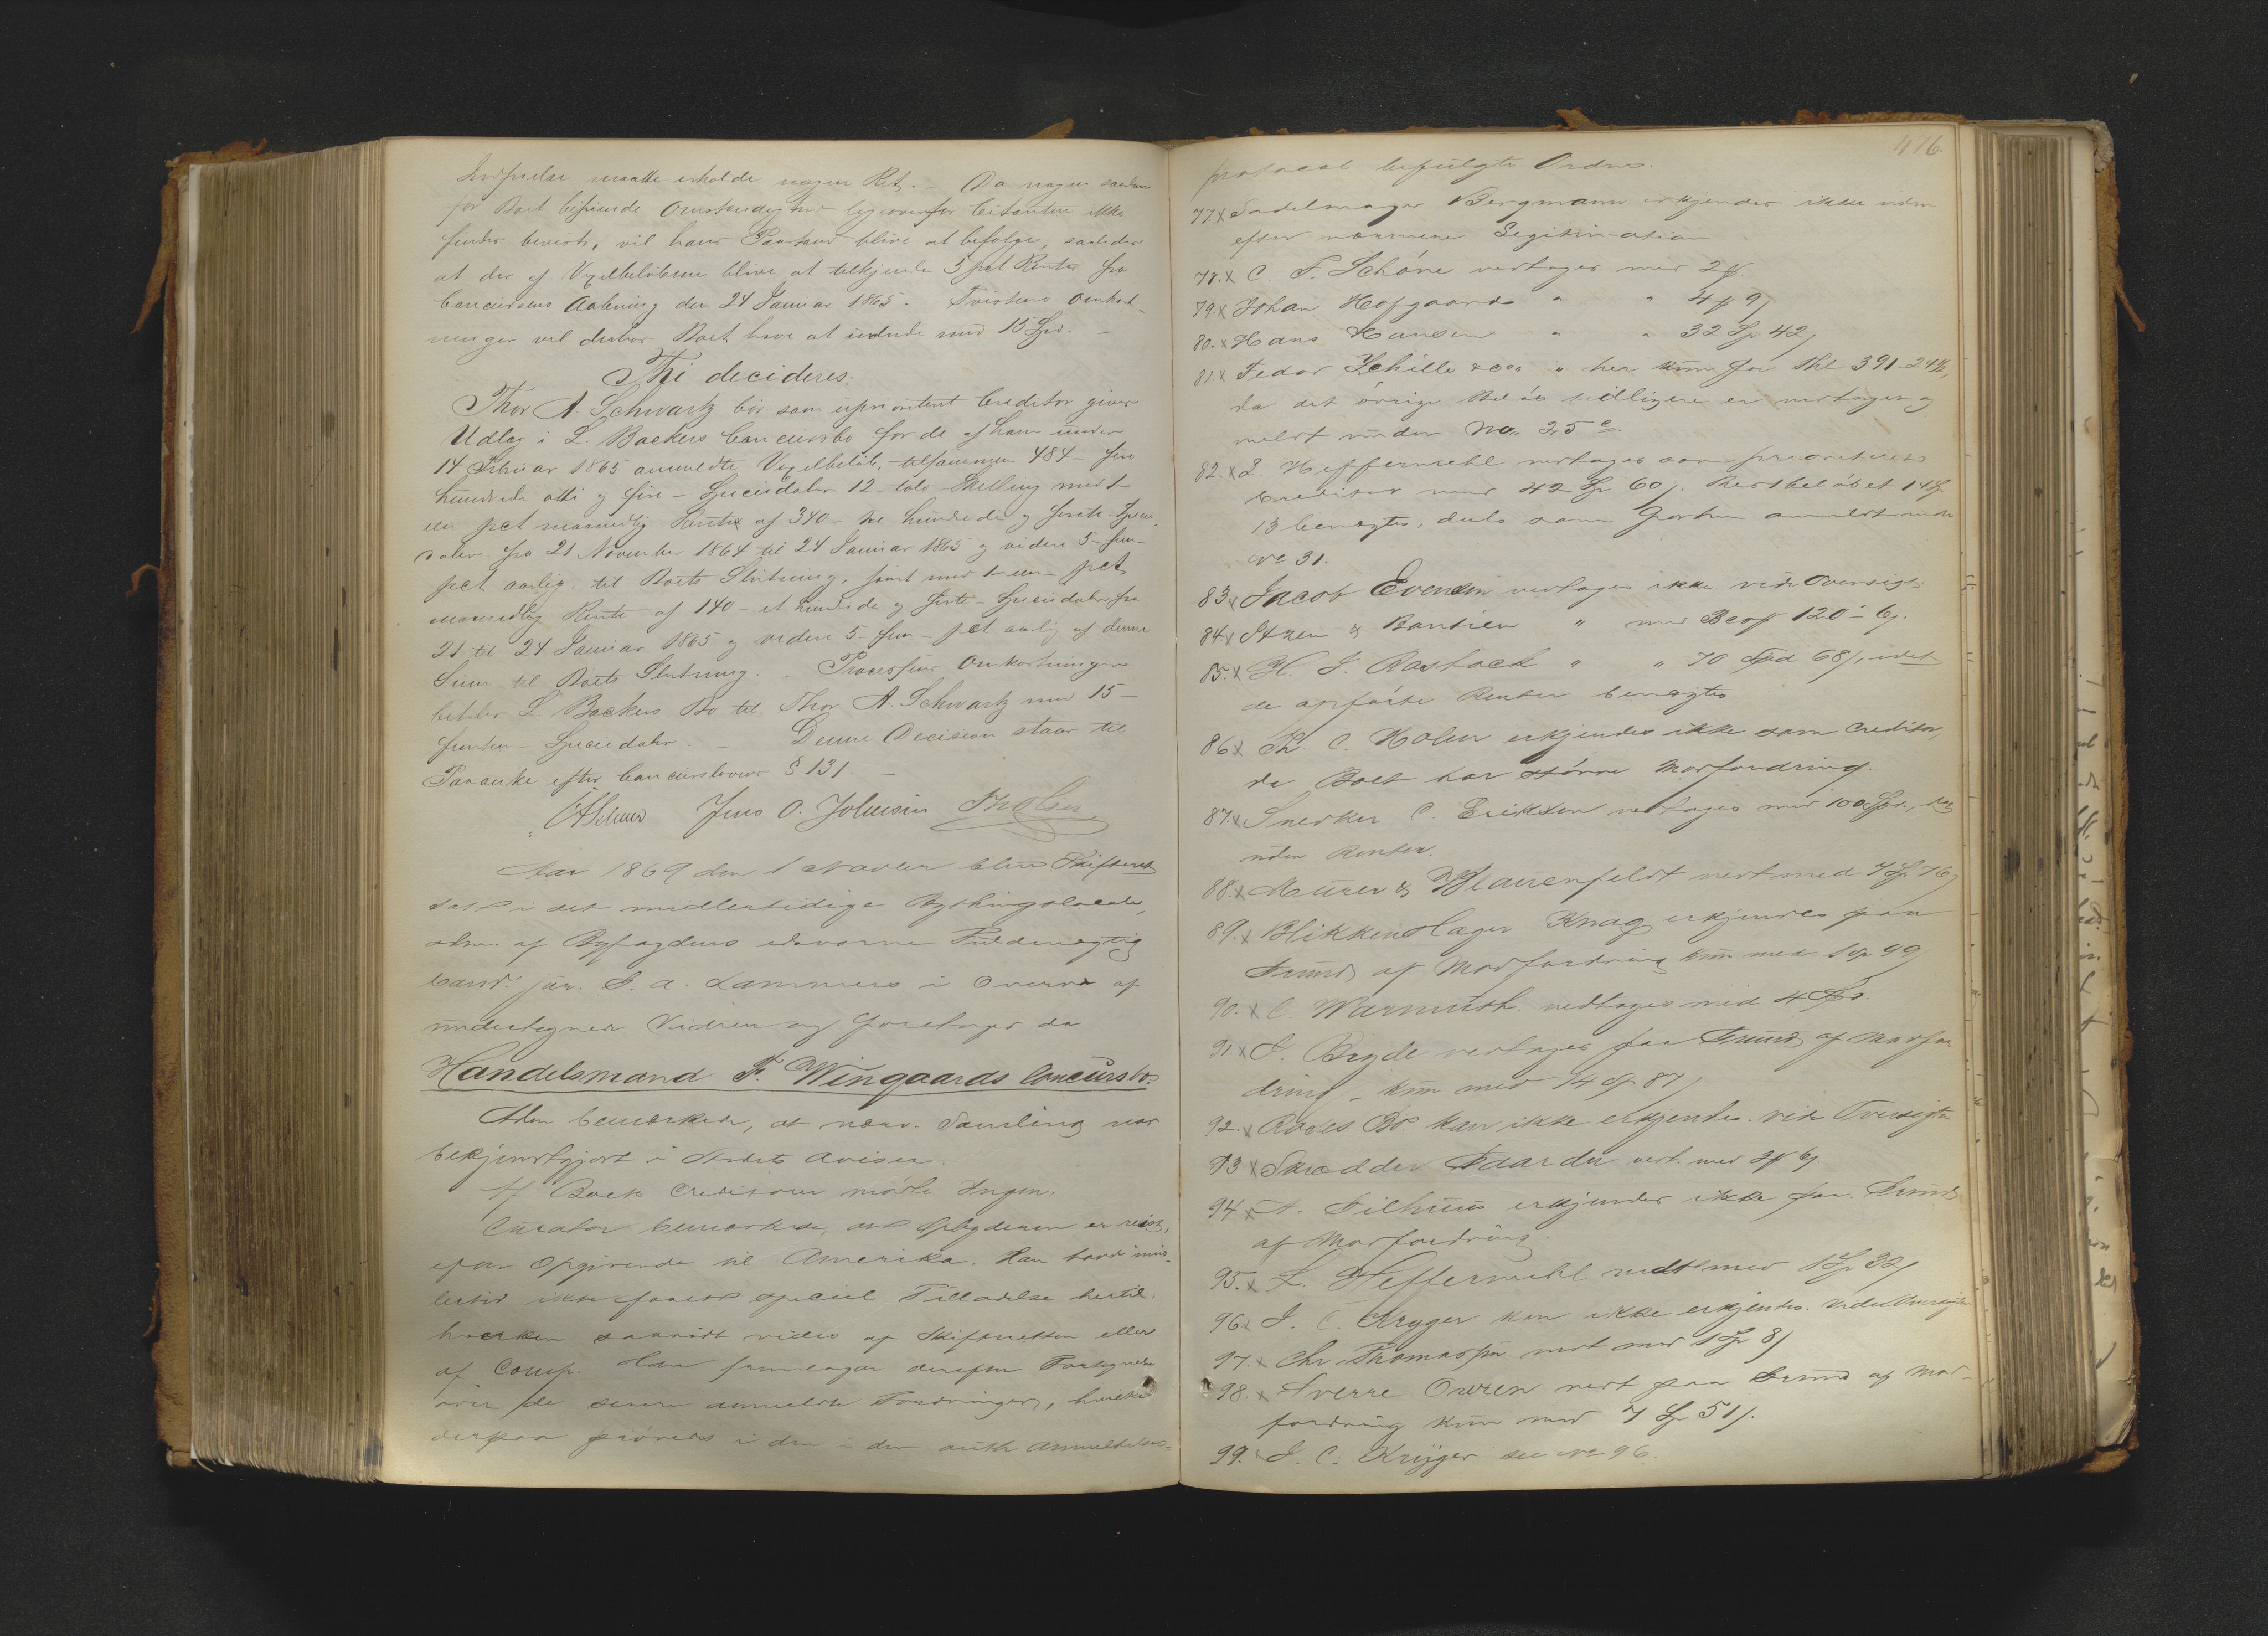 maatte erholde nogen Ret. – Da nogen saadan
for Boet ligeoverfor Citanten ikke
findes bevist, vil hans Paastand blive at befølge, saaledes
at der af Vexelbeløbene blive at tilkjende 5 pct Renter fra
Concursens Aabning den 24 Januar 1865. Tvistens Omkost-
ninger vil derhos Boet have at udrede med 15 Spd. –
Thi decideres:
Thor A Schwartz bør som uprioritert Creditor gives
Udlæg i L. Backers Concursbo for de af ham under
14 Februar 1865 anmeldte Vexelbeløb, tilsammen 484 – fire
hundrede otti og fire – Speciedaler 12 – tolv Skilling med 1 –
een pct maanedlig Rente af 340 – tre hundrede og firti – Specie-
daler fra 21 November 1864 til 24 Januar 1865 og videre 5 – fem –
pct aarlig til Boets Slutning, samt med 1 – een – pct
maanedlig Rente af 140 – et hundrede og firti – Speciedaler fra
21 til 24 Januar 1865 og videre 5 – fem – pct aarlig af denne
Sum til Boets Slutning. – Processens Omkostninger
betaler L. Backers Bo til Thor A. Schwartz med 15 –
femten – Speciedaler. – Denne Decision staar til
Paaanke efter Concurslovens § 131. –
Jens O. Johnsen Th Olsen
Aar 1869 den 1 blev Skifteret
sat i det midlertidige Bythingslocale,
adm. af Byfogdens edsvorne Fuldmægtig
Cand. jur. G. A. Lammers i Overvær af
undertegnede Vidner og foretoges da
Handelsmand F. Wingaards Concursbo.
Adm bemærkede, at nærv. Samling var
bekjendtgjort i Stedets Aviser.
Af Boets Creditorer mødte Ingen.
Curator bemærkede, at Opbyderen er reist,
efter Opgivende til Amerika. Han havde imid-
lertid ikke faaet speciel Tilladelse hertil,
hverken saavidt vides af Skifteretten eller
af Comp. Han fremlagde derefter Fortegnelse
over de senere anmeldte Fordringer, hvilke
derpaa prøvedes i den i den Anmeldelses-
476.
protocol befulgte Orden.
77. x Sadelmager Bergmann erkjendes ikke uden
efter nærmere Legitimation
78. x C. F. Schöne vedtages med 2
79. x Johan Hofgaard " " 4 9
80. x Hans Hansen " " 32 Sp 42
81 x Fedor Zschille & Co " her kun for Thl 391–24
da det øvrige Beløb tidligere er vedtaget og
meldt under No 25 c.
82. x L. Heffermehl vedtages som prioriteret
Creditor med 42 Sp 60. Restbeløbet 14 Sp
13 benægtes, dels som anmeldt under
No 31.
83 x Jacob Evensen vedtages ikke. vide Oversigt
84 x & Bantien " med Bco 120 – 6
85. x H. J. Rasback " " 70 Spd 68, idet
de opførte Renter benægtes
86 x Th. C. Holm erkjendes ikke som Creditor,
da Boet har større Modfordring.
87. x Snedker C. Eriksen vedtages med 100 Spd.,
uden Renter.
88. x Meurer & Blauenfeldt vedt med 4 Sp 76
89. x Blikkenslager Knag erkjendes paa
Grund af Modfordring kun med 1 Sp 99
90. x C. Warmuth vedtages med 4 Spd.
91. x J. Bryde vedtages paa Grund af Modfor
dring – kun med 14 Sp 87
92. x Bo kan ikke erkjendes. vide Oversigten
93 x Skrædder Gaarder vedt. med 3 Sp 6
94 x erkjendes ikke paa Grund
af Modfordring.
95. x L. Heffermehl vedt med 1 Sp 38
96. x J. C. Kryger kan ikke erkjendes. vide Oversigten
97. x Chr. Thomassen vedt med 1 Sp 8
98. x Sverre Owren vedt paa Grund af Mod-
fordring kun med 4 Sp 51.
99. J. C. Krÿger see No 96.